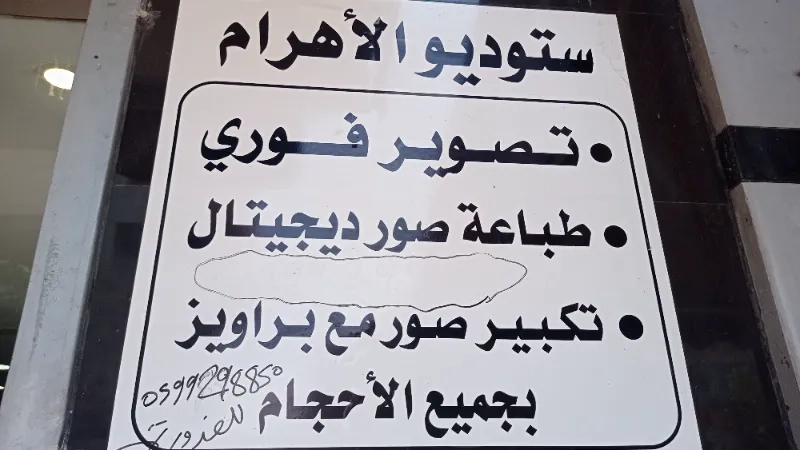 ستوديو الأهرام
• تصوير فوري
• طباعة صور ديجيتال
• تكبير صور مع براويز
بجميع الأحجام
0599298850
للضرورة